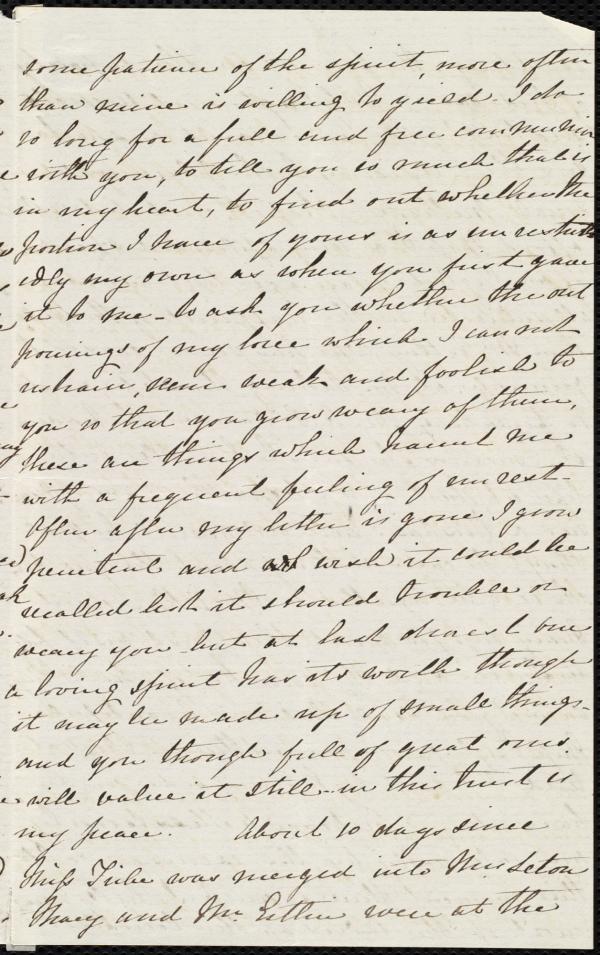 some patience of the spirit, more often
than mine is willing to yield. I do
so long for a full and free communion
with you, to tell you so much that is
in my heart, to find out whether the
portion I have of yours is as unrestrict
edly my own as when you first gave
it to me - to ask you whether the out
pourings of my love which I cannot
restrain, seem weak and foolish to
you so that you grow weary of them,
these are things which haunt me
with a frequent feeling of unrest -
Often after my letter is gone I grow
penitent and wish it could be
recalled lest it should trouble or
weary you but at last dearest one
a loving spirit has its worth though
it may be made up of small things -
and you though full of great ones.
will value it still - in this trust is
my peace. About 10 days since
Miss was merged into Mrs
Mary and Mr. Estlin were at the